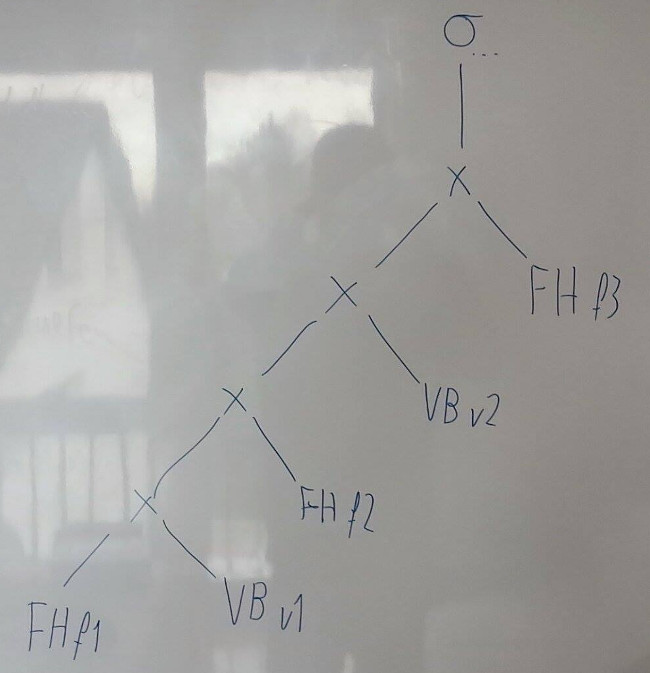 σ...
X
X
FH f3
X
VB v2
X
FH f2
FH f1
VB v1